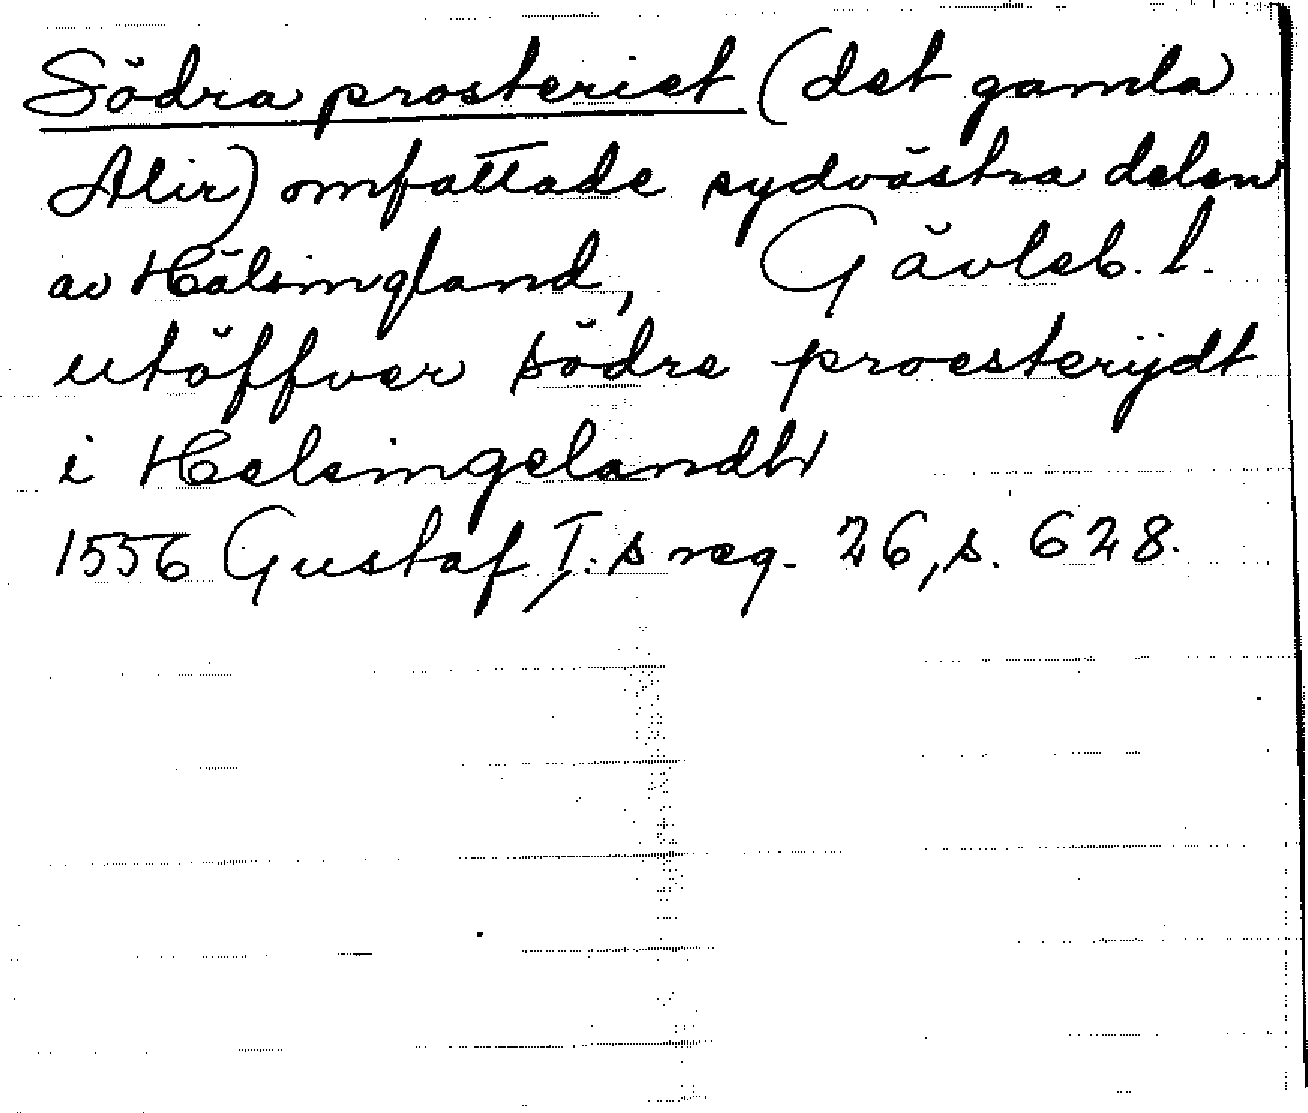 Södra prosteriet (det gamla
Alir) omfattade sydvästra delen
av Hälsingland, Gävleb. l.
utöffver södre proesterijdt
i Helsingelandtt
1556 Gustaf I:s reg. 26, s. 628.